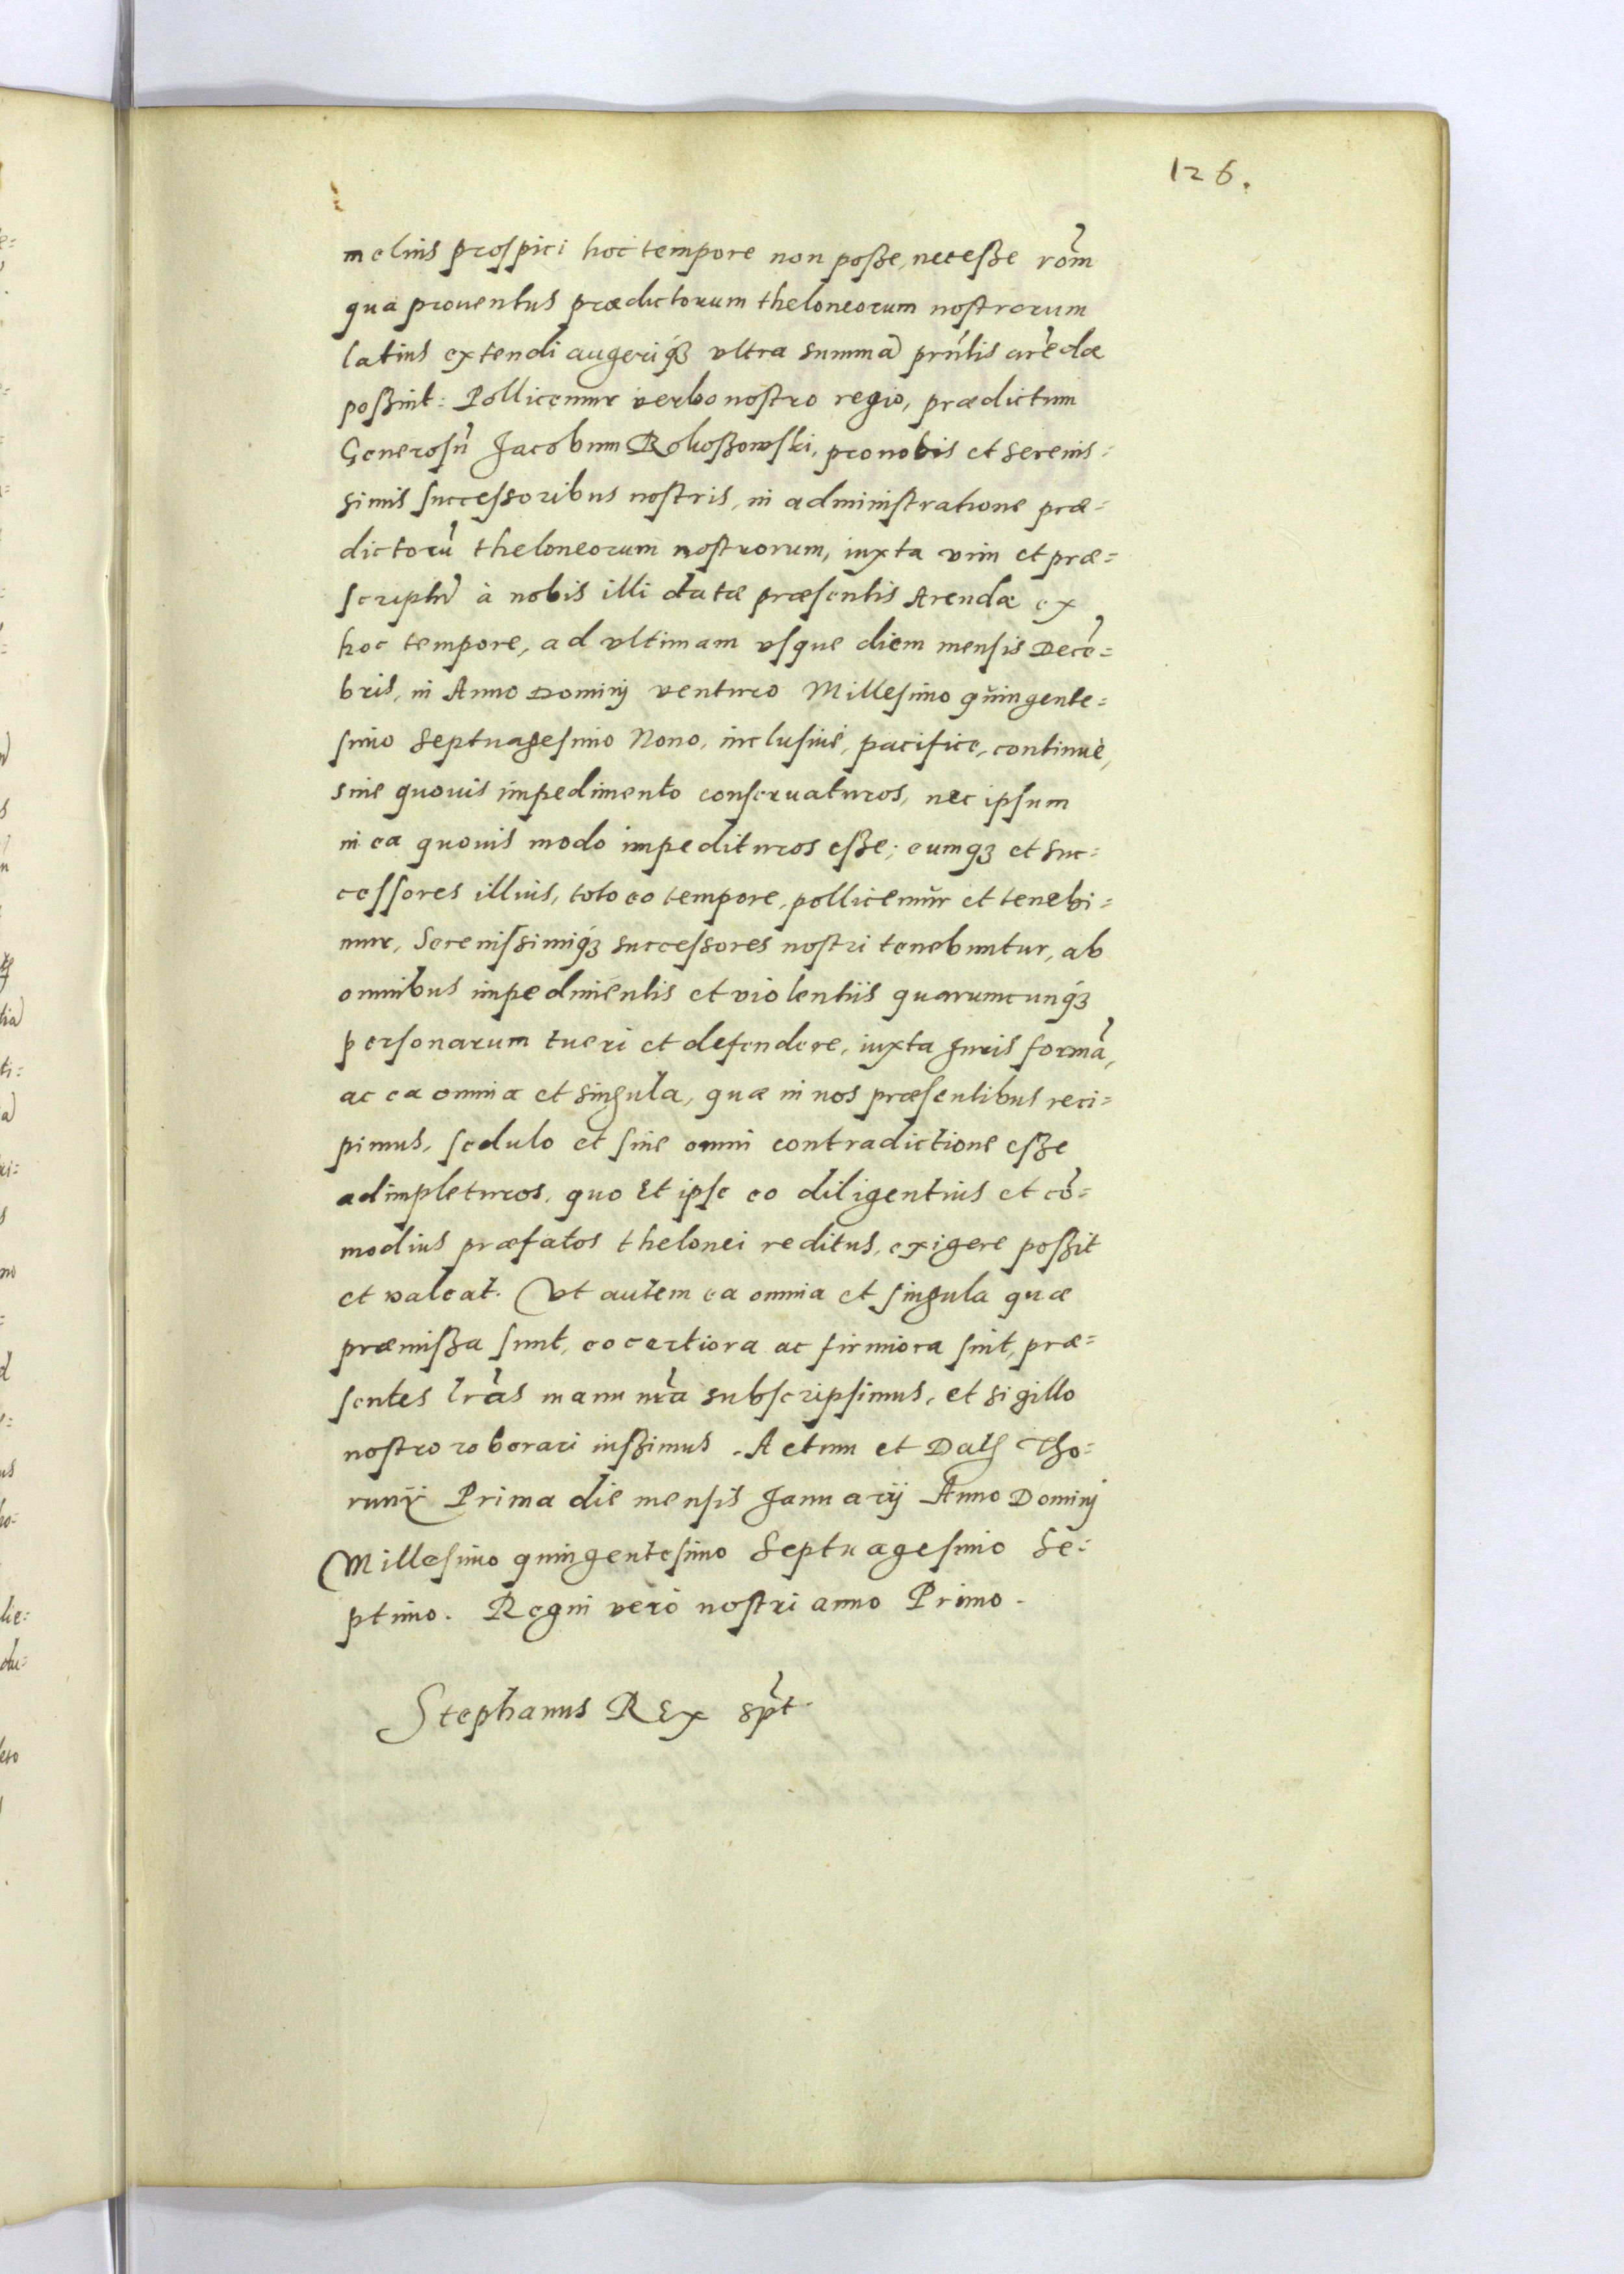 126.
melius prospici hoc tempore non posse, necesse rõm
qua prouentus prædictorum theloneorum nostrorum
latius extendi augeriq́ꝫ vltra summã prñtis arẽdæ
possint: Pollicemur verbo nostro regio, prædictum
Generosũ Jacobum Rokossowski, pro nobis et serenis=
simis successoribus nostris, in administratione præ=
dictorũ theloneorum nostrorum, iuxta vim et præ=
scriptũ à nobis illi datæ præsentis Arendæ ex
hoc tempore, ad vltimam vsque diem mensis Decẽ=
bris, in Anno Dominj venturo Millesimo quingente=
simo Septuagesimo Nono, inclusiuè, pacifice, continuè,
sine quouis impedimento conseruaturos, nec ipsum
in ea quouis modo impedituros esse; eumqꝫ et suc=
cessores illius, toto eo tempore, pollicemur et tenebi=
mur, Serenissimiq́ꝫ successores nostri tenebuntur, ab
omnibus impedimentis et violentiis quarumcunq́ꝫ
personarum tueri et defendere, iuxta Juris formã,
ac ea omnia et singula, quæ in nos præsentibus reci=
pimus, sedulo et sine omni contradictione esse
adimpleturos, quo Et ipse eo diligentius et cõ=
modius præfatos thelonei reditus, exigere possit
et valeat. Vt autem ea omnia et singula quæ
præmissa sunt, eo certiora ac firmiora sint, præ=
sentes lrãs manu nrã subscripsimus, et sigillo
nostro roborari iussimus. Actum et Datꝭ Tho=
runÿ Prima die mensis Januarij Anno Dominj
Millesimo quingentesimo Septuagesimo Se=
ptimo. Regni verò nostri anno Primo.
Stephanus REx spt̃